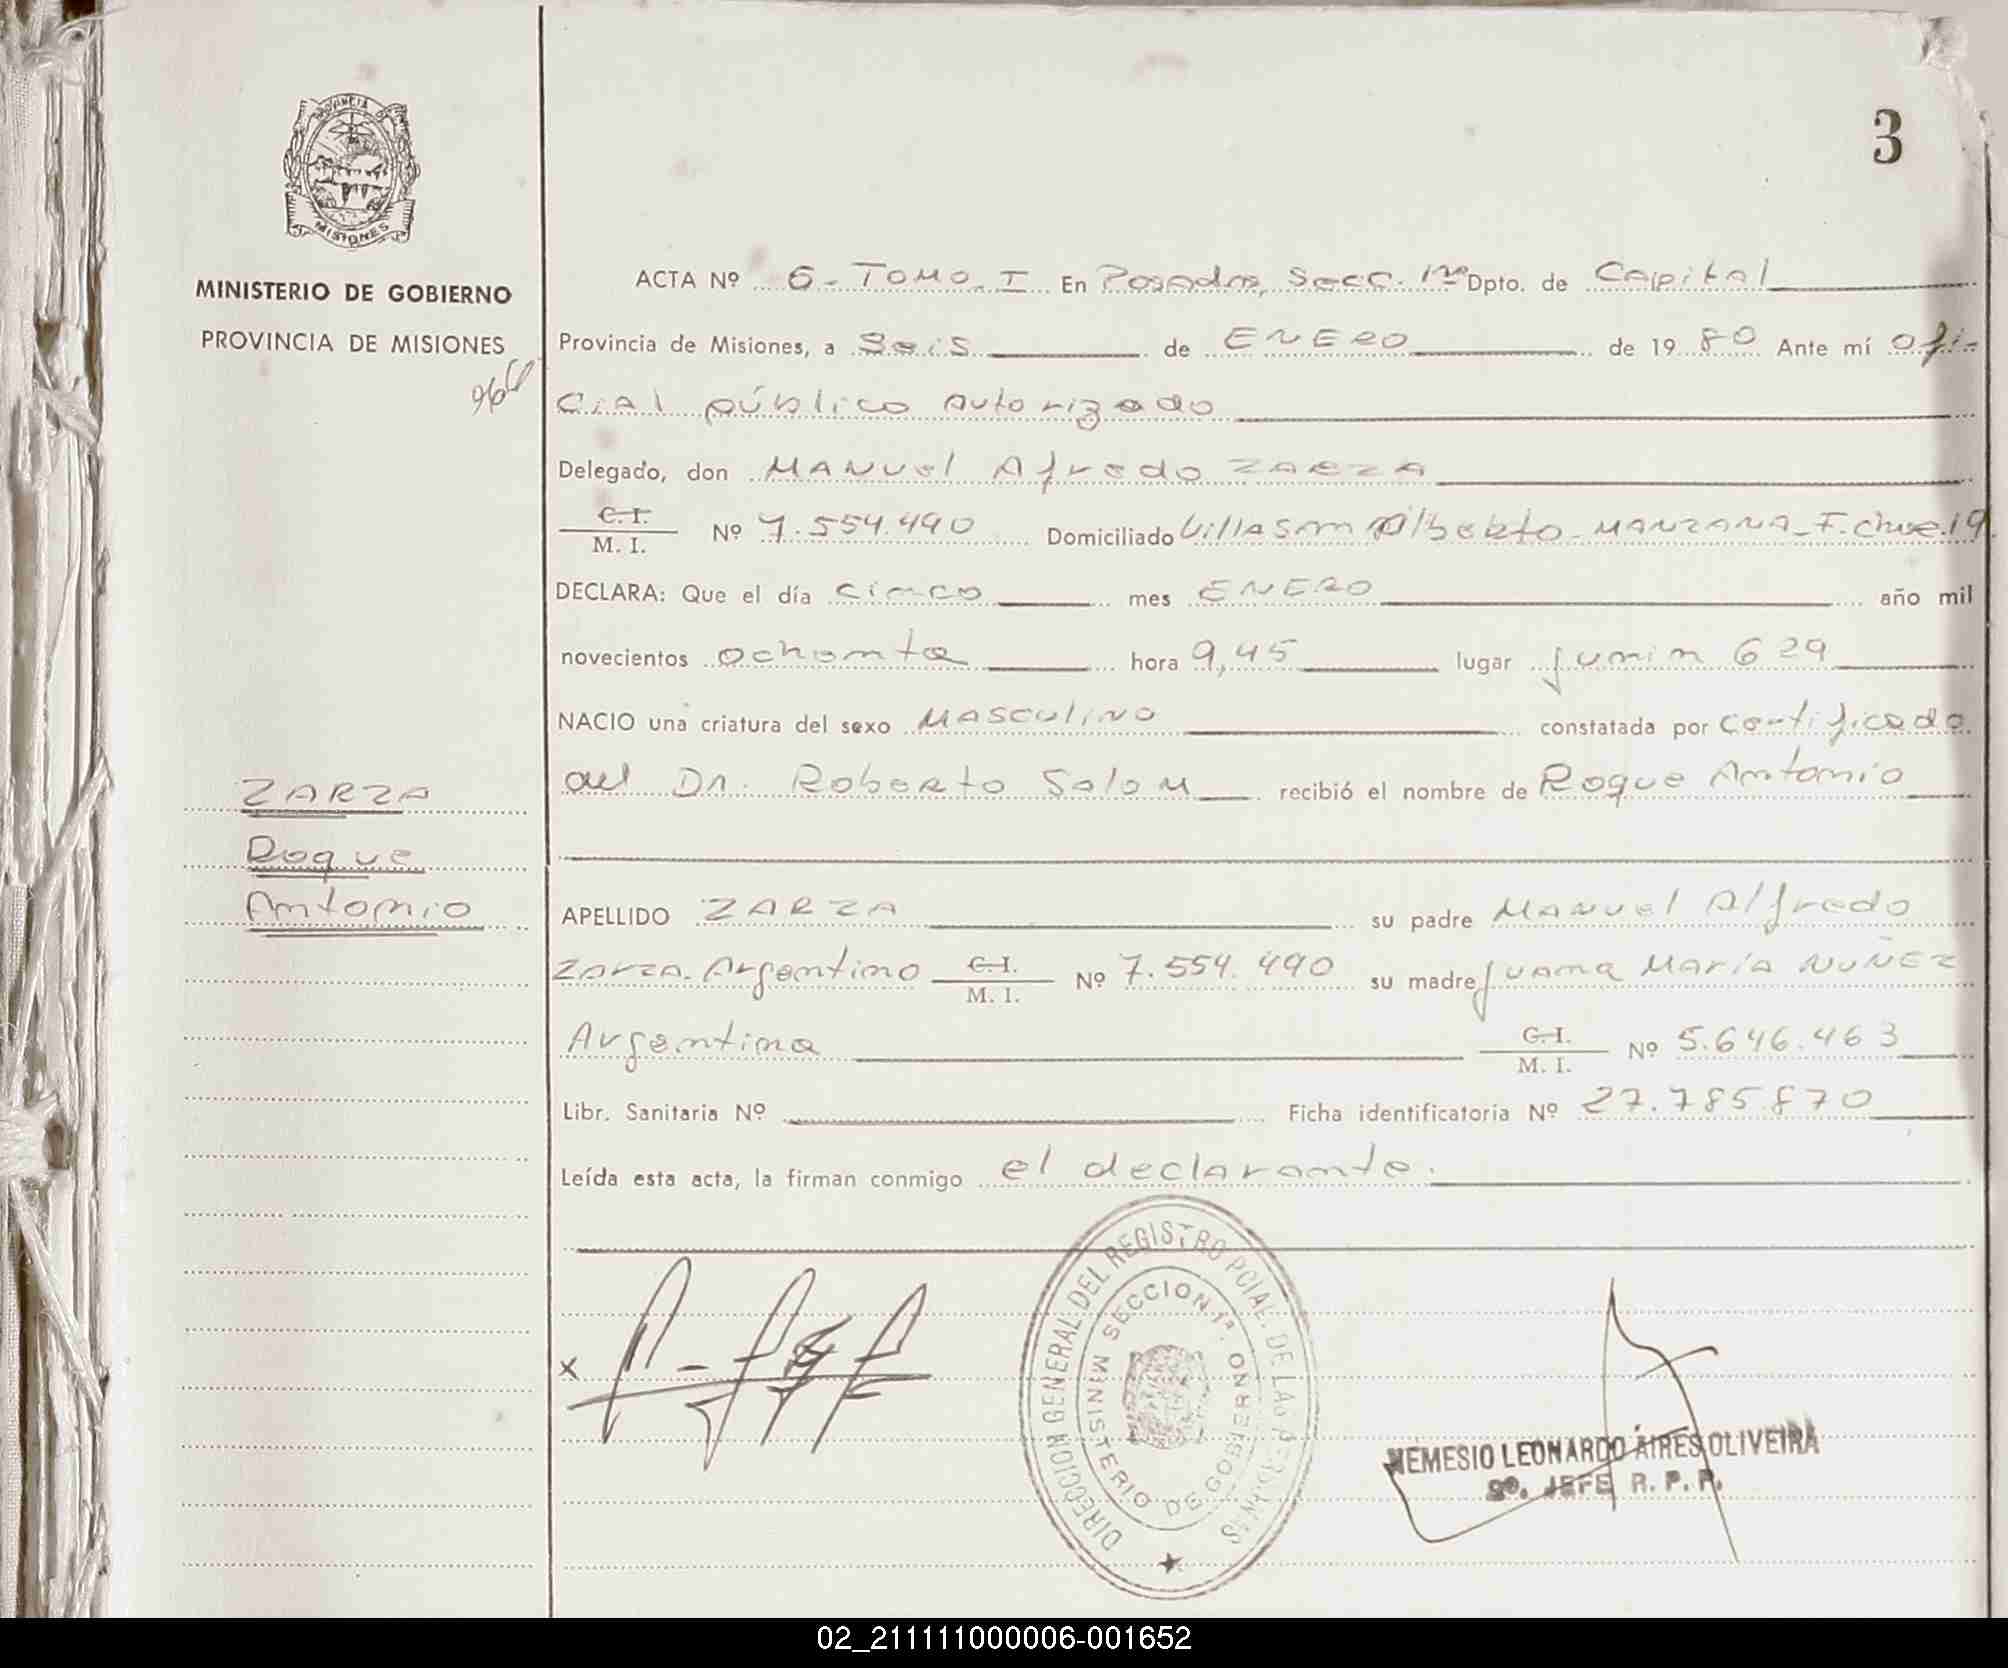 PROVINCIA DE
MISIONES
3
MINISTERIO DE GOBIERNO
PROVINCIA DE MISIONES
ACTA Nº 6 - TOMO. I En Posadas, Secc. 1ra Dpto. de Capital
Provincia de Misiones, a Seis de ENERO de 1980 Ante mí ofi-
cial público autorizado
Delegado, don MANuel Alfredo ZARZA
C. I.
M. I. Nº 7.554.490 Domiciliado Villa San Alberto - MANZANA - F. chae. 19
DECLARA: Que el día cinco mes ENERO año mil
novecientos ochenta hora 9,45 lugar junin 629
NACIO una criatura del sexo MASCuliNO constatada por certificado
del Dr. Roberto Solom recibió el nombre de Roque Antonio
ZARZA
Roque
Antonio
APELLIDO ZARZA su padre MANuel Alfredo
Zarza. Argentino C. I.
M. I. Nº 7.554.490 su madre juana María NUÑEZ
Argentina C. I.
M. I. Nº 5.646.463
Libr. Sanitaria Nº Ficha identificatoria Nº 27.785.870
Leída esta acta, la firman conmigo el declarante.
x
DIRECCION GENERAL DEL REGISTRO PCIAL. DE LAS PERSONAS
SECCION 1ª.
MINISTERIO DE GOBIERNO
NEMESIO LEONARDO AIRES OLIVEIRA
2º. JEFE R. P. P.
02_211111000006-001652